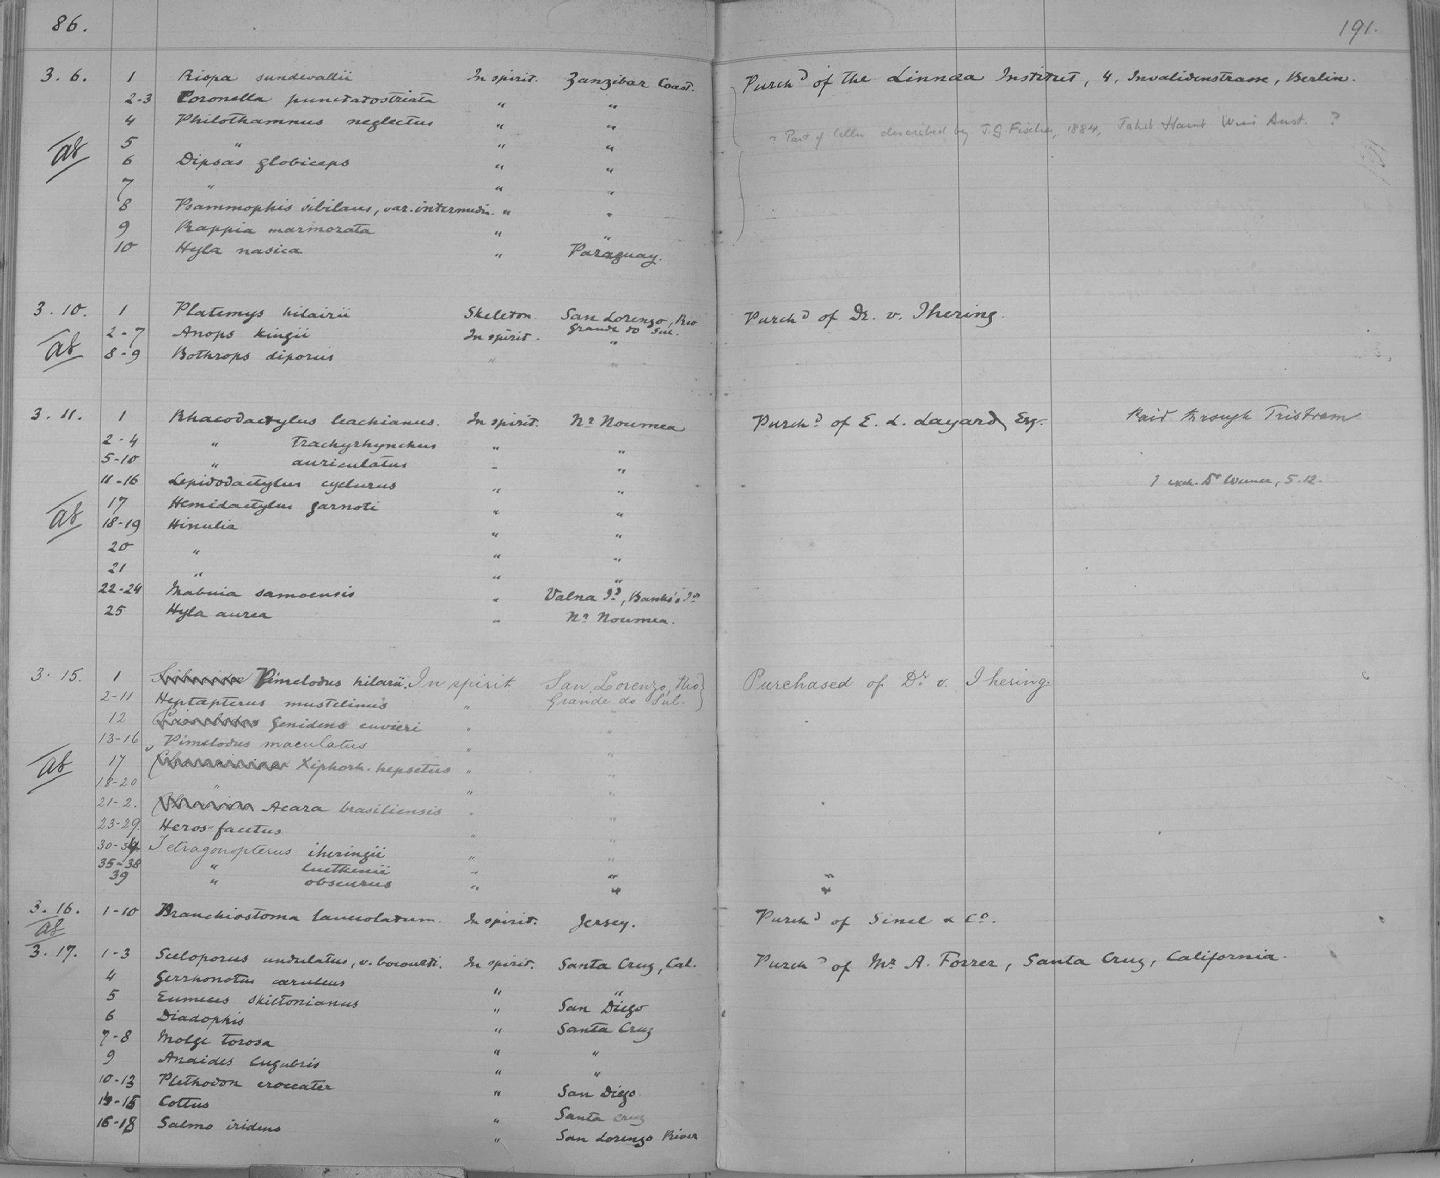 86.
191.
3. 6. 1 Riopa sundevallii In spirit. Zanzibar Coast. Purchd of the Linnaea Institut, 4, Invalidenstrasse, Berlin.
2-3 Coronella punctatostriata " "
4 Philothamnus neglectus " "
Part of Colln described by J.G. Fischer, 1884, Jahrb Hamb Wiss Anst. ?
5 " " "
6 Dipsas globiceps " "
7 " " "
8 Psammophis sibilans, var. intermedia. " "
9 Rappia marmorata " "
10 Hyla nasica " Paraguay.
3. 10. 1 Platemys hilairii Skeleton San Lorenzo, Rio Grande do Sul. Purchd of Dr. v. Ihering.
2-7 Anops kingii In spirit. "
8-9 Bothrops diporus " "
3. 11. 1 Rhacodactylus leachianus. In spirit. Nr Noumea Purchd of E. L. Layard, Esq. Paid through Tristram
2-4 " trachyrhynchus " "
5-10 " auriculatus " "
11-16 Lepidodactylus cyclurus " "
1 exch. Dr Werner, 5.12.
17 Hemidactylus garnoti " "
18-19 Hinulia " "
20 " " "
21 " " "
22-24 Mabuia samoensis " Valna Id, Banks's Is
25 Hyla aurea " Nr Noumea.
3. 15. 1 Pimelodus hilarii. In spirit San Lorenzo, Rio Grande do Sul. Purchased of Dr v. Ihering.
2-11 Heptapterus mustelinus "
12 Genidens cuvieri " "
13-16 Pimelodus maculatus " "
17 Xiphorh. hepsetus " "
18-20 " " "
21-2. Acara brasiliensis " "
23-29. Heros facetus " "
30-34 Tetragonopterus iheringii " "
35-38 " luetkenii " " "
39 " obscurus " " "
3. 16. 1-10 Branchiostoma lanceolatum. In spirit. Jersey. Purchd of Sinel & Co.
3. 17. 1-3 Sceloporus undulatus, v. bocourti. In spirit. Santa Cruz, Cal. Purchd of Mr A. Forrer, Santa Cruz, California.
4 Gerrhonotus caeruleus " "
5 Eumeces skiltonianus " San Diego
6 Diadophis " Santa Cruz
7-8 Molge torosa " "
9 Anaides lugubris " "
10-13 Plethodon croceater " San Diego
14-15 Cottus " Santa Cruz
16-18 Salmo irideus " San Lorenzo River